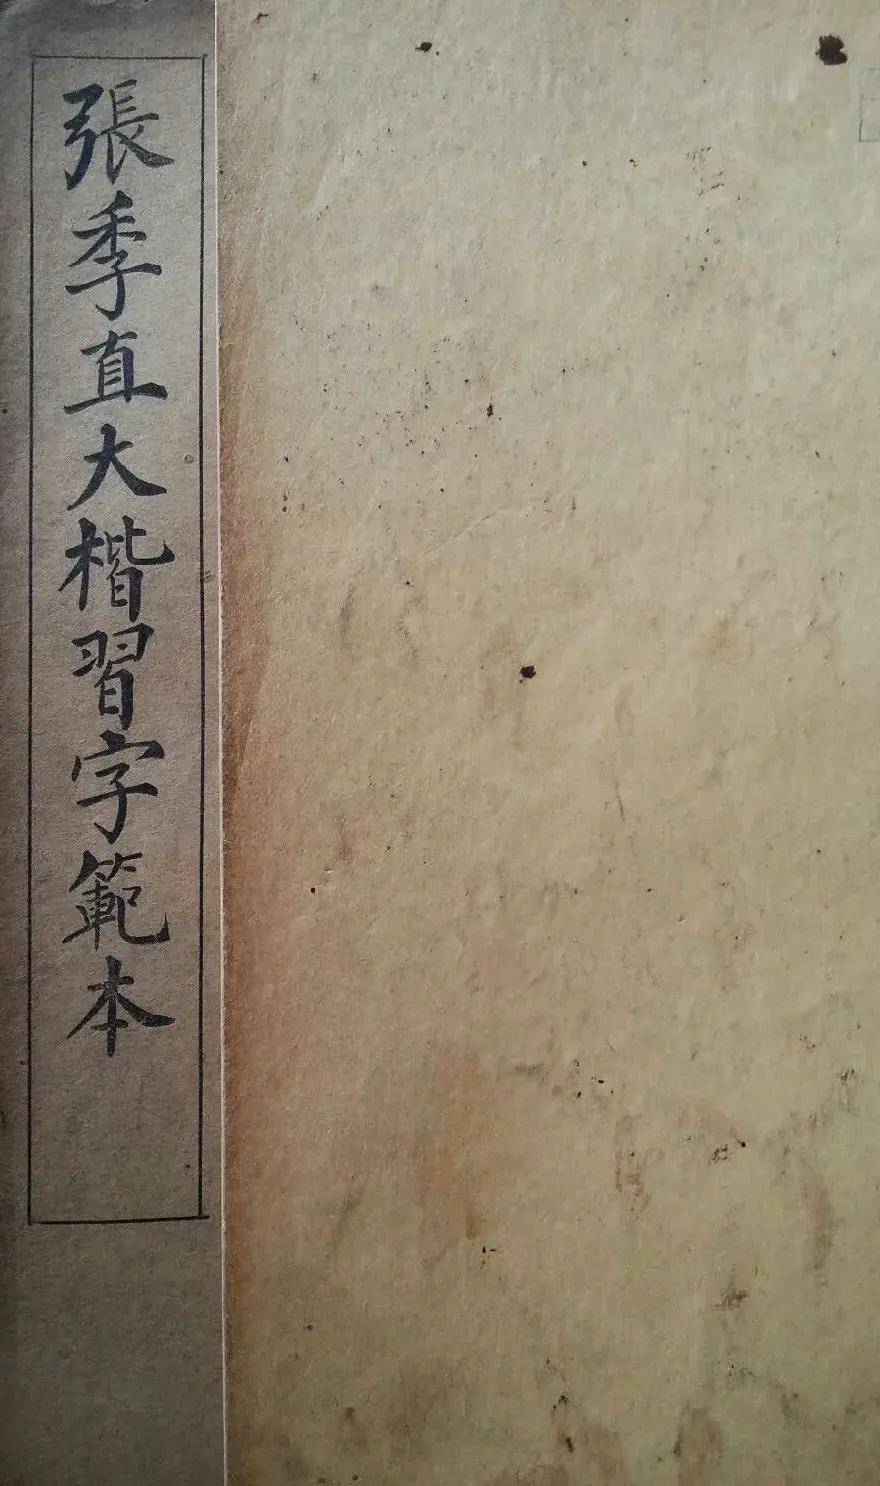 張季直大楷習字範本